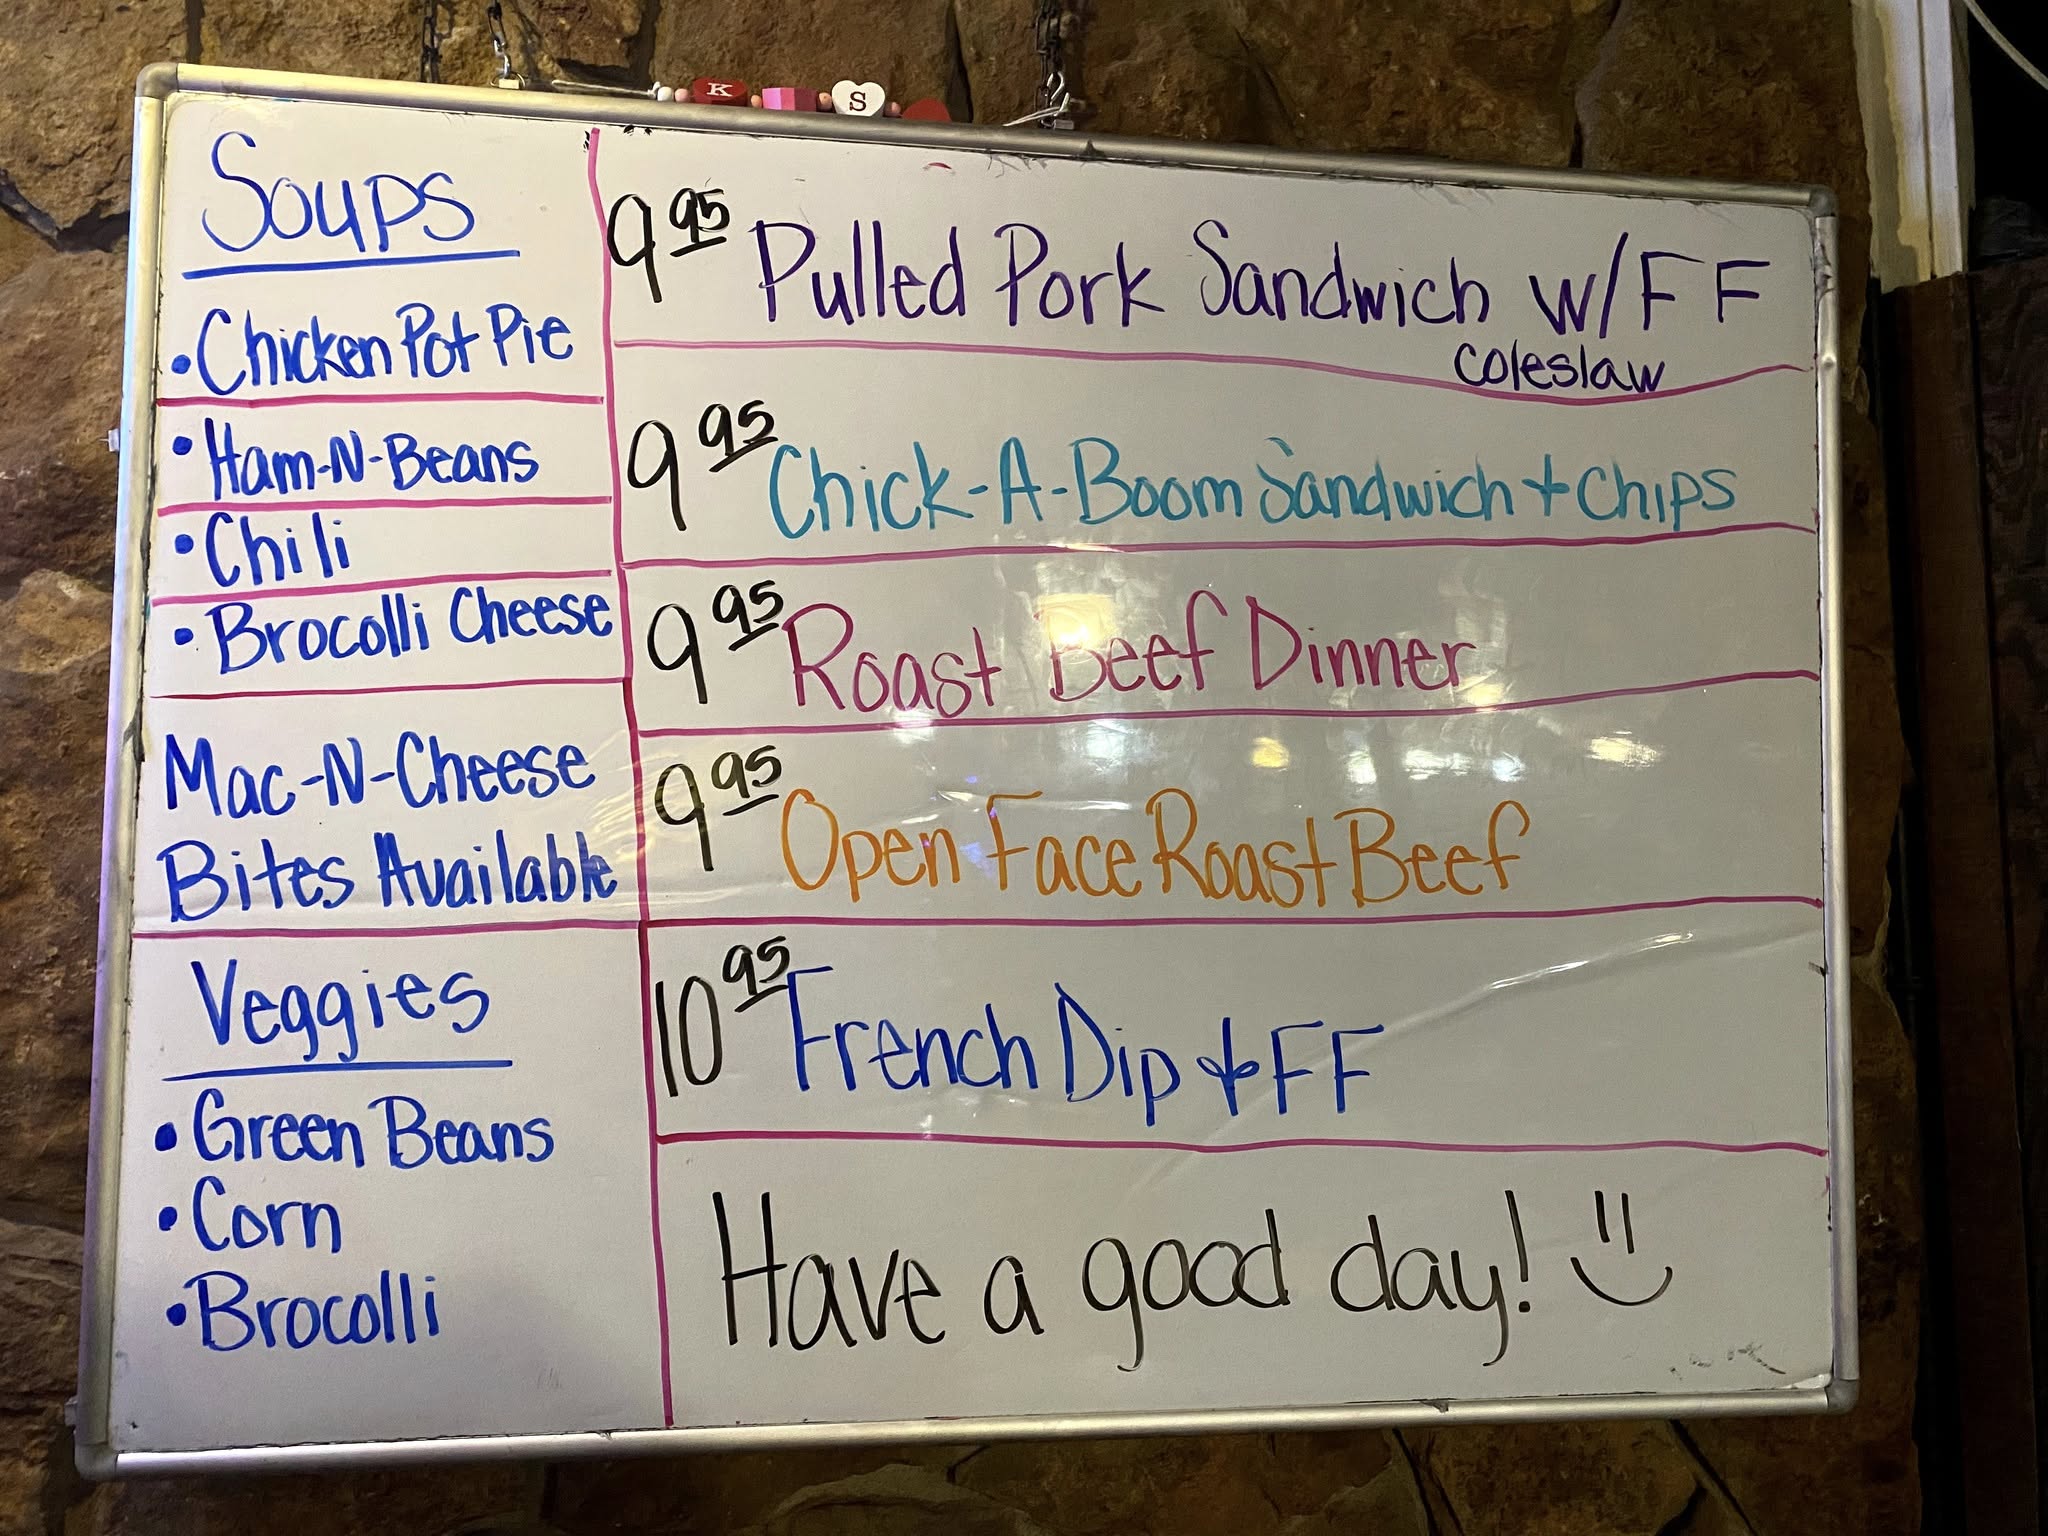 K S
Soups
• Chicken Pot Pie
• Ham-N-Beans
• Chili
• Brocolli Cheese
Mac-N-Cheese
Bites Available
Veggies
• Green Beans
• Corn
• Brocolli
9 95 Pulled Pork Sandwich w/FF
coleslaw
9 95 Chick-A-Boom Sandwich + Chips
9 95 Roast Beef Dinner
9 95 Open Face Roast Beef
10 95 French Dip & FF
Have a good day!